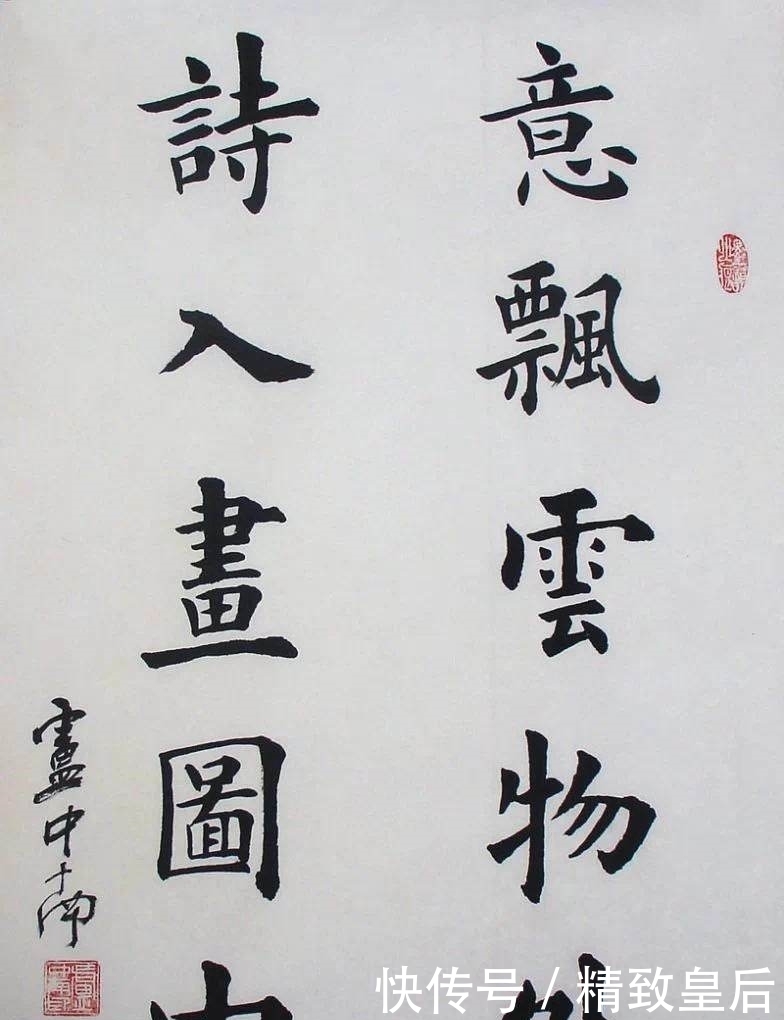 意飄雲物
詩入畫圖
盧中南
快传号 / 精致皇后